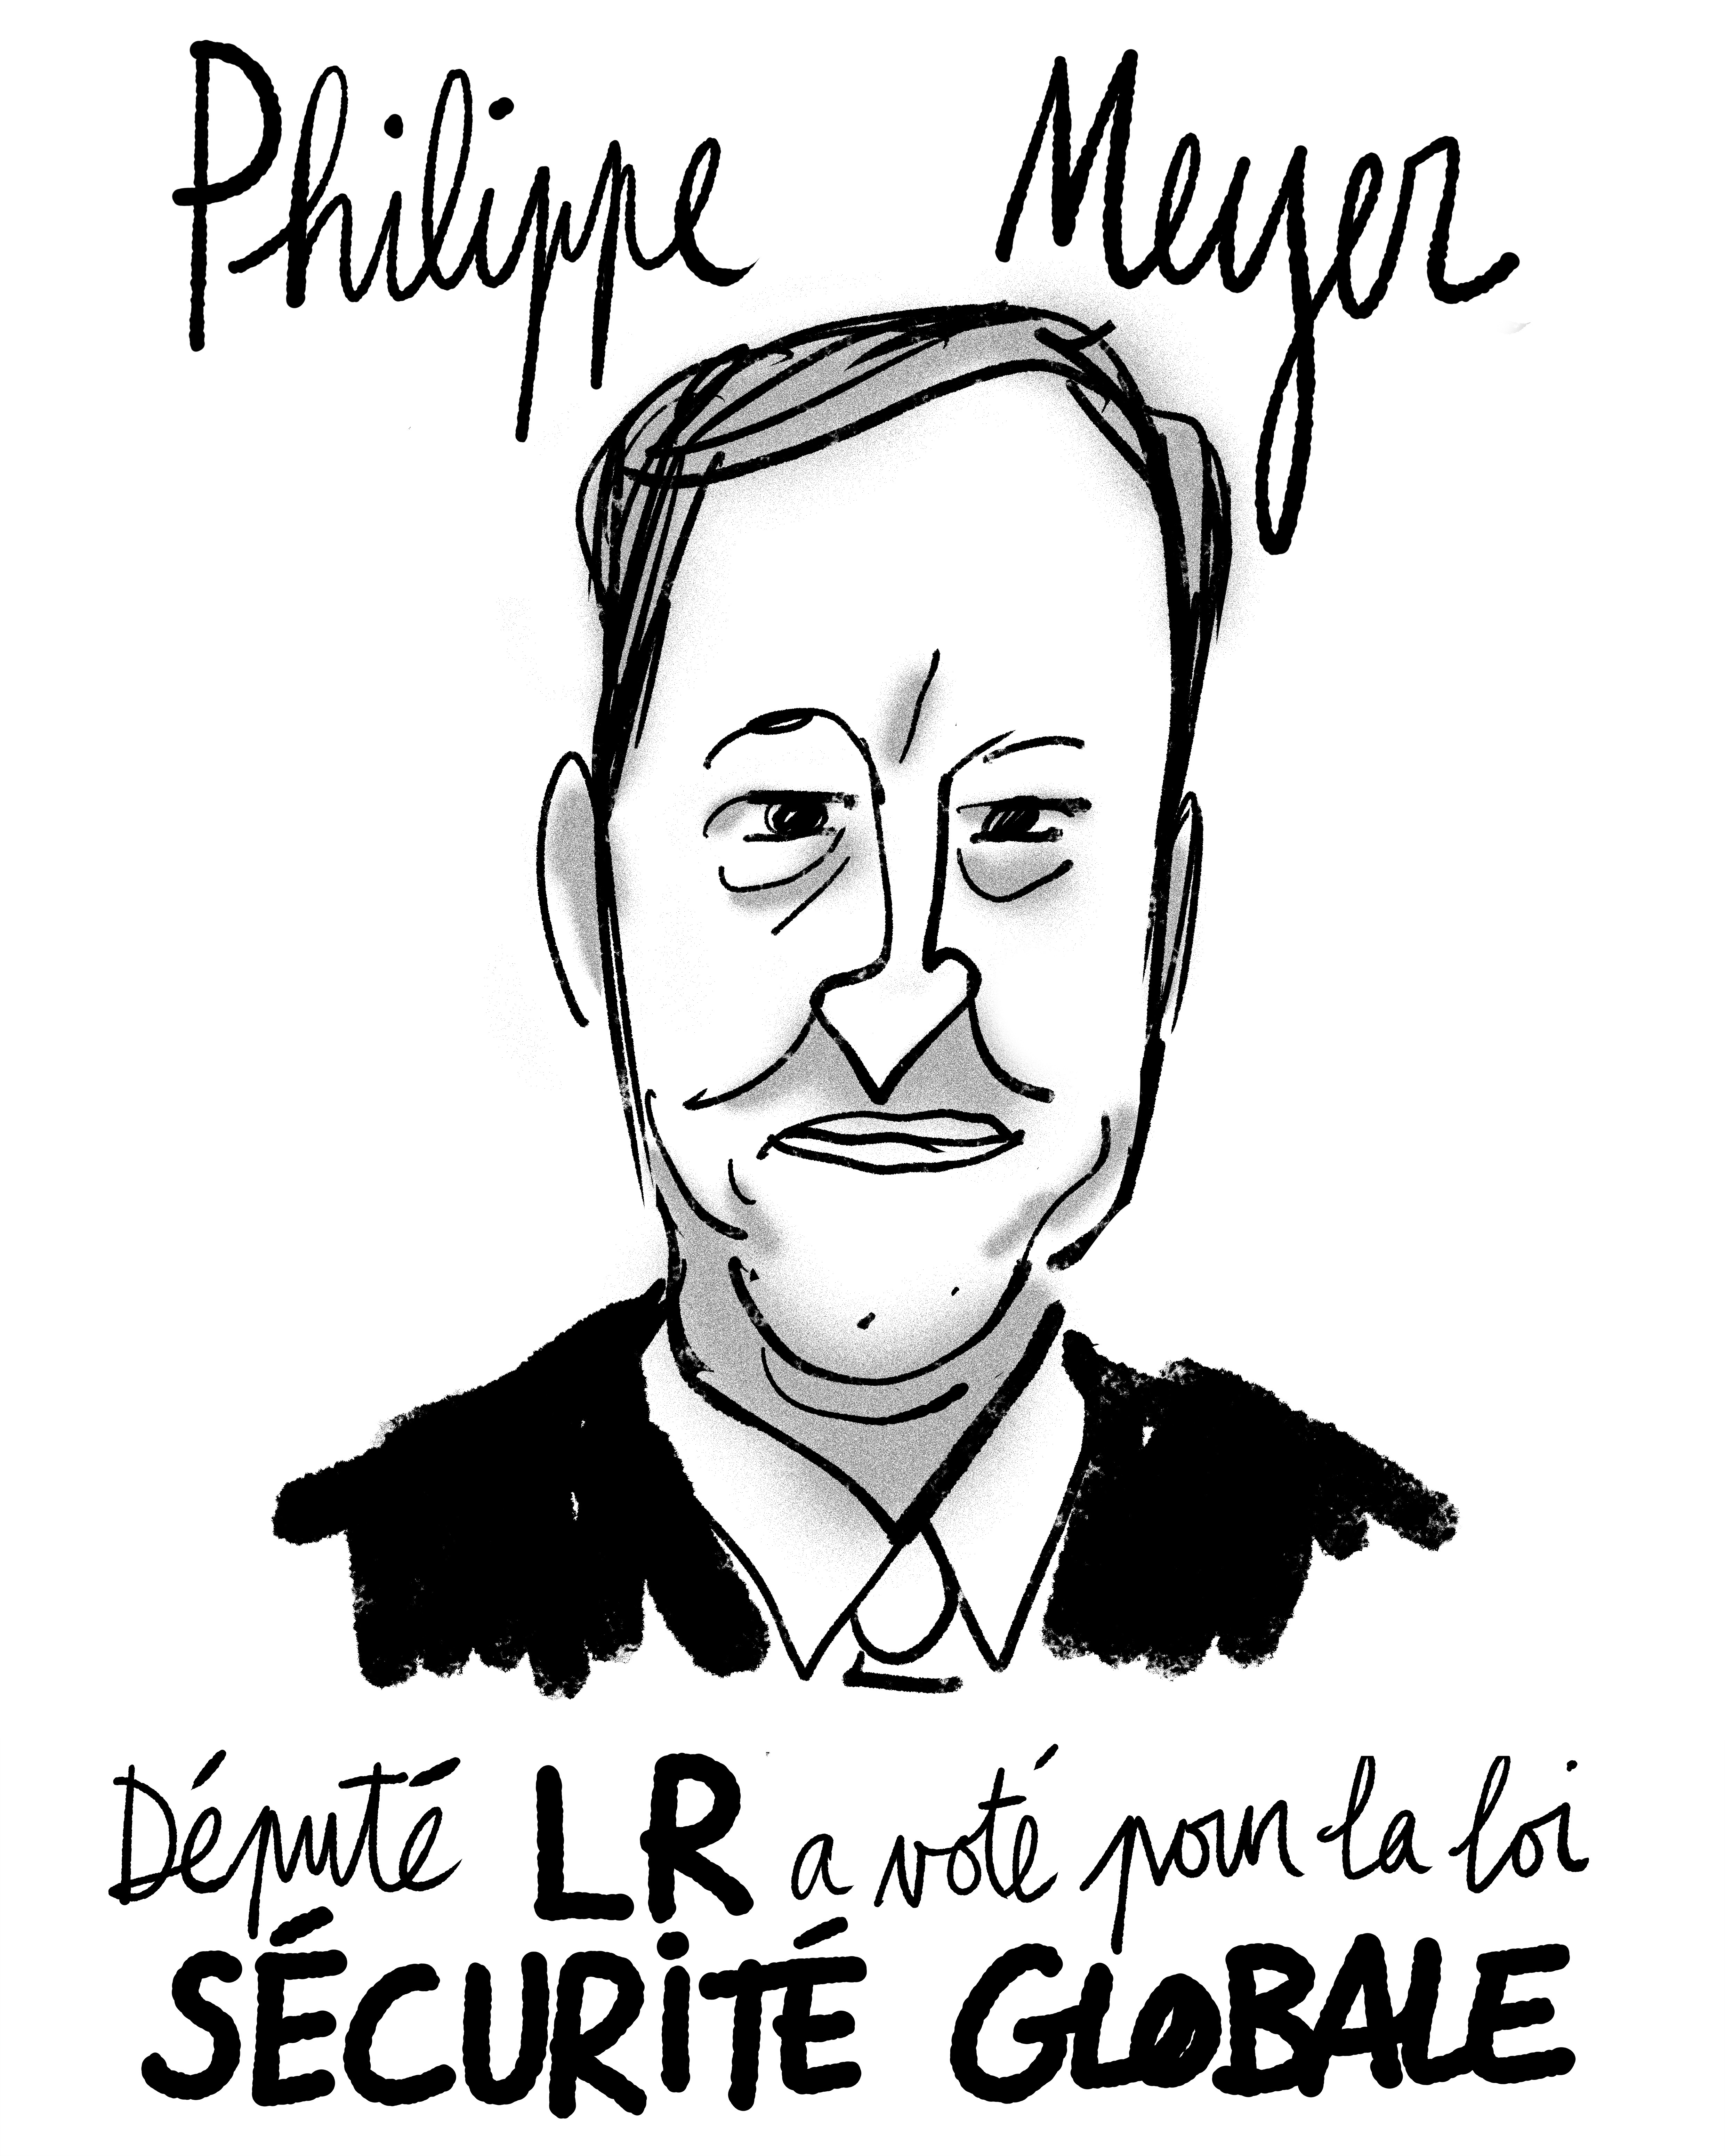 Philippe Meyer
Député LR a voté pour la loi
SÉCURiTÉ GLOBALE